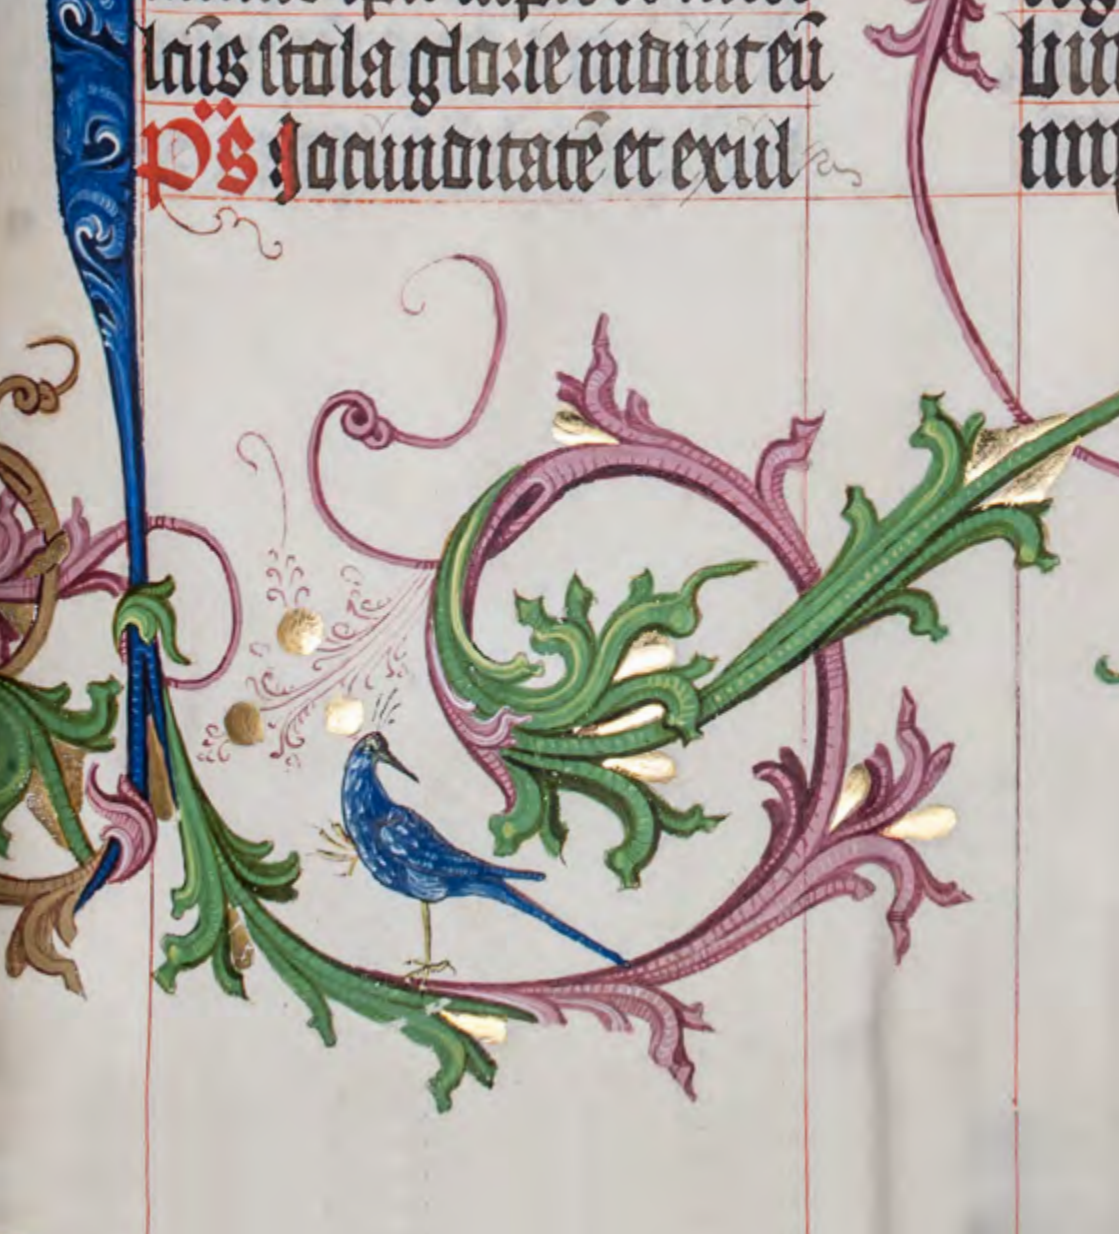 laūs stola glorie induit eū
p̄s Jocunditatē et exul